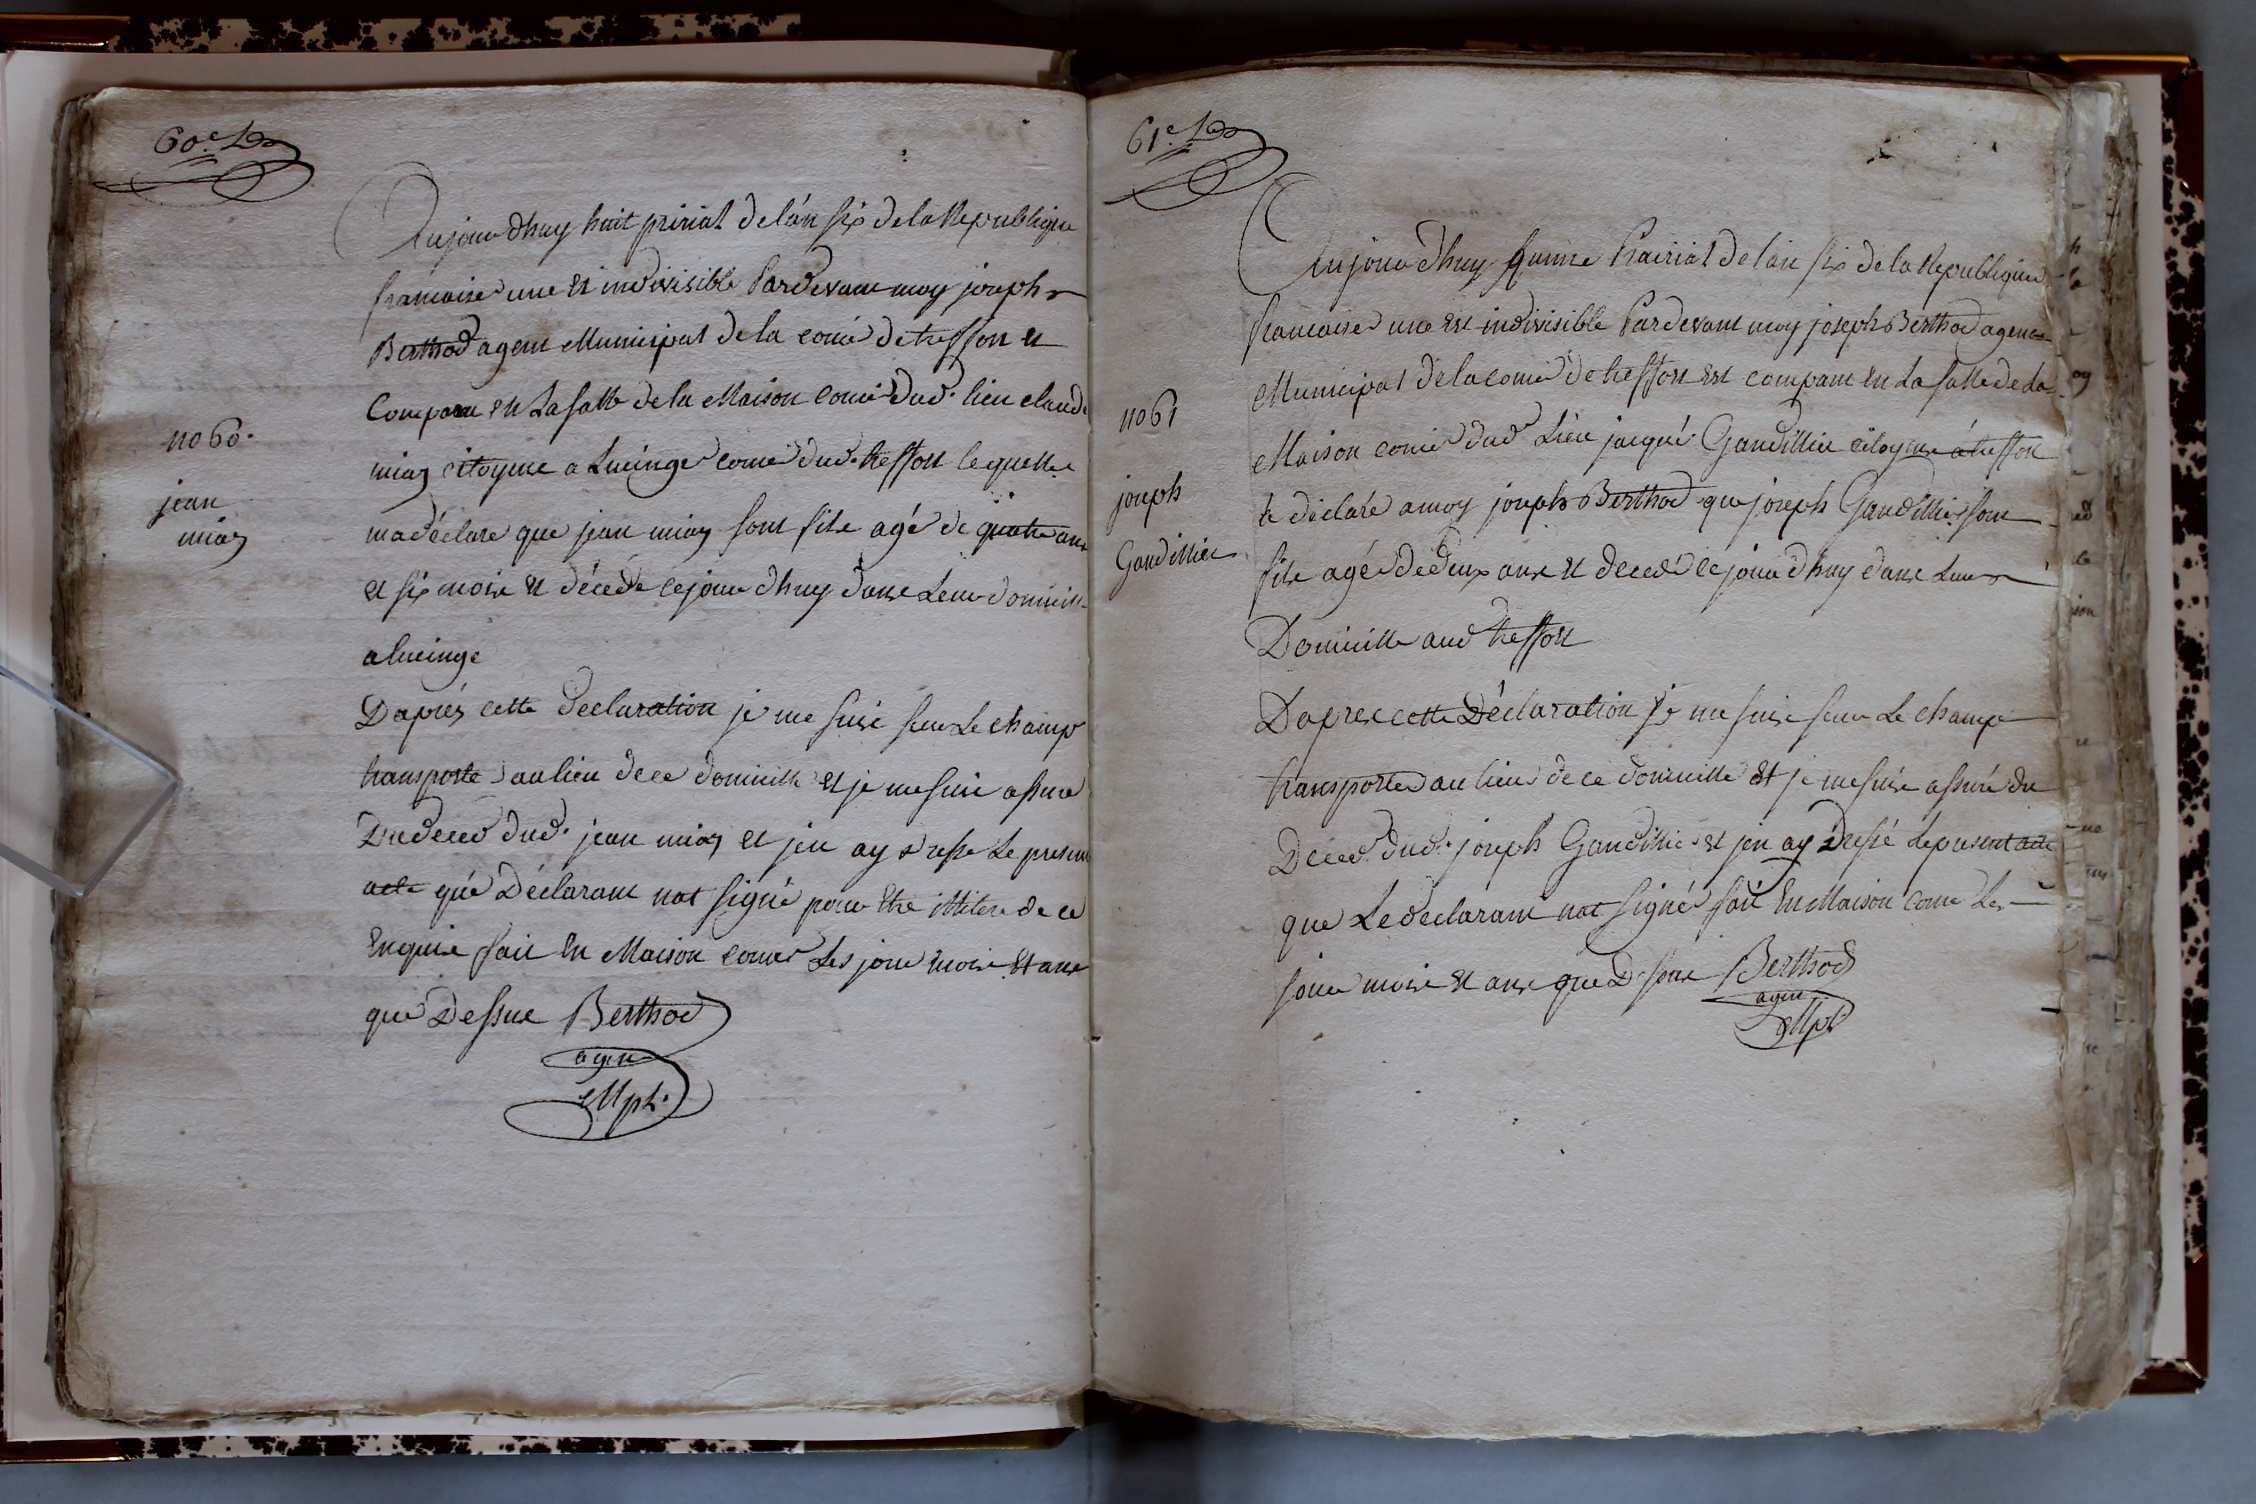 60e
Aujourdhuy huit pririal de lán six de la Republique
francaise une et indivisible Pardevant moy joseph
Berthod agent Municipal de la come de treffort et
Comparu en La salle de la Maison come dud. lieu claude
no 60.
miaz citoyens a Lucinge come dud. treffort lequelle
jean
miaz
ma déclare que jean miaz sont fils agé de quatre ans
et six mois et décédé cejourdhuy dans Leur domicille
a lucinge
Daprés cette declaration je me suis sur Le champ
transporte au lieu de ce domicille et je me suis assure
Du deced dud. jean miaz et jen ay dresse Le present
acte que Déclarant nat signé pour Etre
Enquis fait en Maison come Les jour mois Et ans
que Dessus Berthod
agen
Mpl.
61e
Aujourdhuy Prairial de lan six de la Republique
francaise une Et indivisible Pardevant moy joseph Berthod agent
Municipal de la come de treffort Est comparu en La salle de La
no 61
Maison come dud Lieu jacque Gaudillier citoyens á treffort
joseph
Gaudillier
te déclaré a moy joseph Berthod que joseph Gaudillier sont
fils agé de deux ans et decedé cejourdhuy dans Leur
Domicille aud treffort
Dapres cette Déclaration je me suis sur Le champ
transporter au lieu de ce domicille Et je me suis assuré du
Deced. dud. joseph Gaudillier et jen ay Dressé Le present acte
que Le declarant nat signé fait En Maison come Les
jour mois et ans que Dessus Berthod
agen
Mpl.